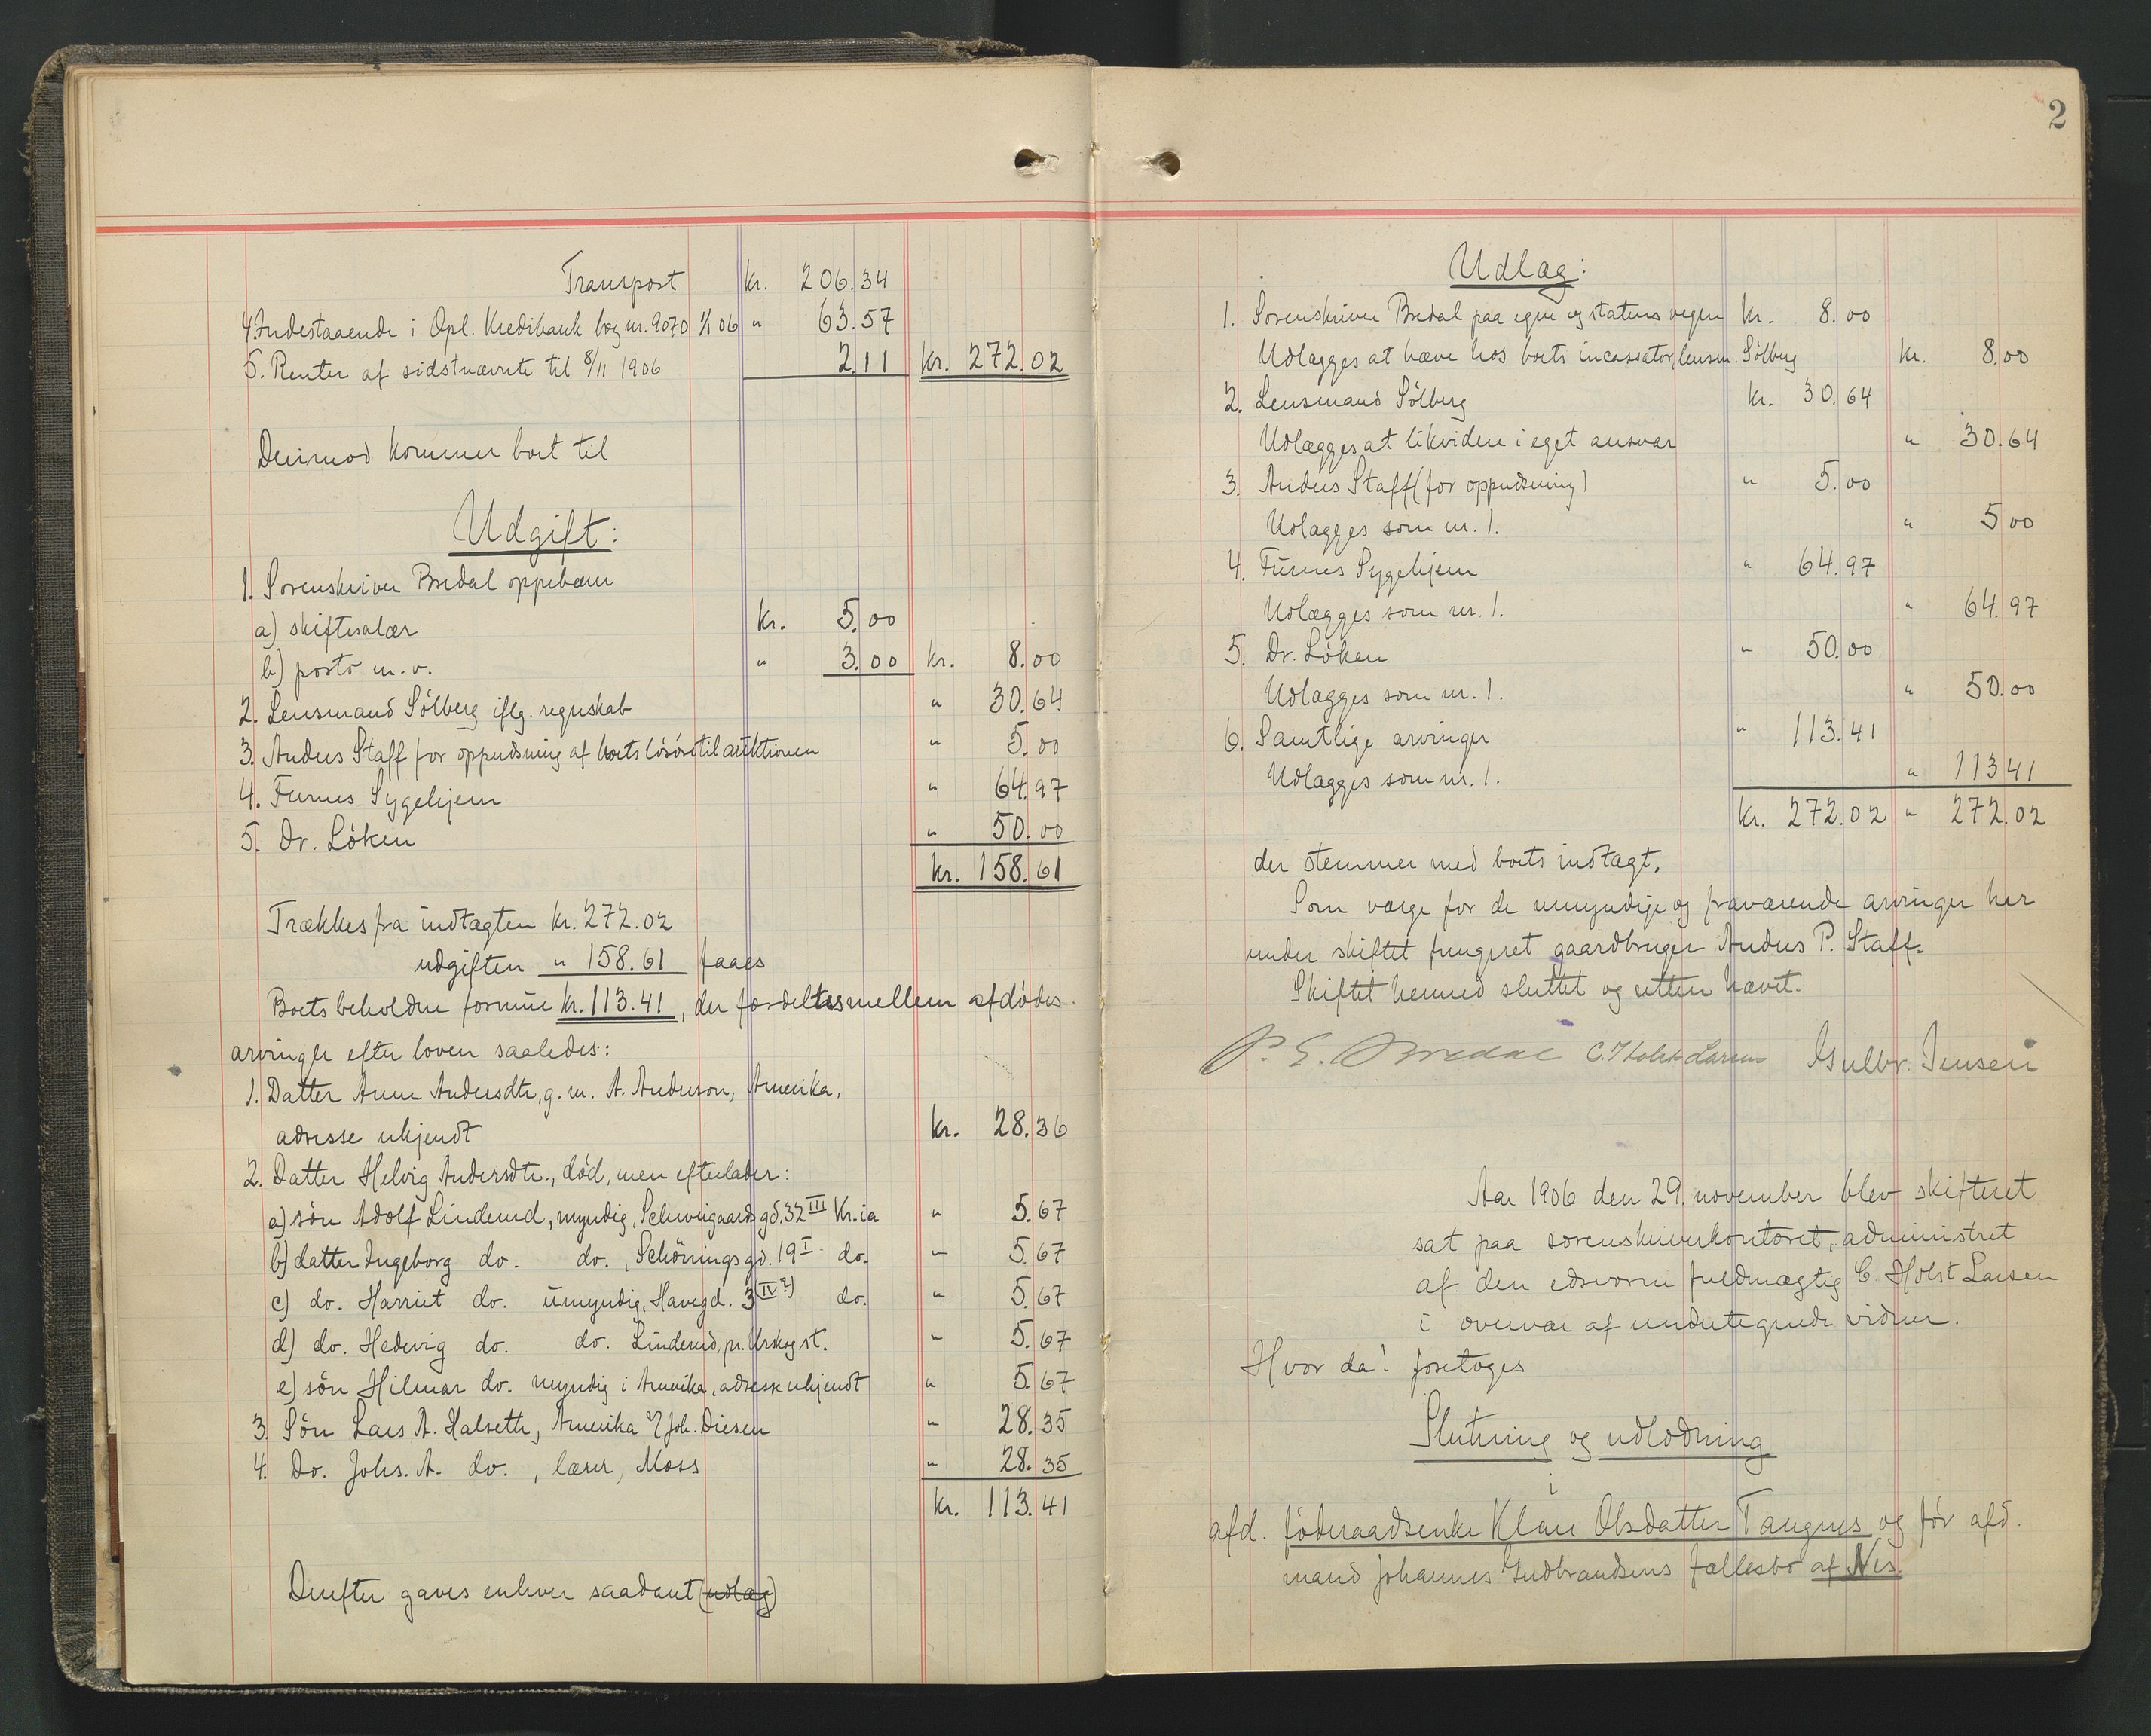 Transport kr. 206.34
4. Indestaaende i Opl. Kredibank bog nr. 9070 1/1 06 " 63.57
5. Renter af sidstnævnte til 8/11 1906 2.11 kr. 272.02
Derimod kommer boet til
Udgift:
1. Sorenskriver Bredal oppebærer
a) skiftesalær kr. 5.00
b) porto m.v. " 3.00 kr. 8.00
2. Lensmand Sölberg iflg. regnskab " 30.64
3. Anders Staff for oppudsning af boets lösöre til auktionen " 5.00
4. Furnes Sygehjem " 64.97
5. Dr. Löken " 50.00
kr. 158.61
Trækkes fra indtægten kr. 272.02
udgiften " 158.61 faaes
Boets beholdne formue kr. 113.41, der fordeltes mellem afdödes
arvinger efter loven saaledes:
1. Datter Anne Andersdtr, g. m. A. Anderson, Amerika,
adresse ukjendt kr. 28.36
2. Datter Helvig Andersdtr., död, men efterlader:
a) sön Adolf Linderud, myndig, Schweigaards gd. 32 III Kr.ia " 5.67
b) datter Ingeborg do. do., Schönings gd. 19 I do. " 5.67
c) do. Harriet do. umyndig, Havegd. 3 (IV?) do. " 5.67
d) do. Hedevig do. do. Linderud, pr. Urskog st. " 5.67
e) sön Hilmar do. myndig i Amerika, adresse ukjendt " 5.67
3. Sön Lars A. Halseth, Amerika Joh. Diesen " 28.35
4. Do. Johs. A. do., lærer, Moss " 28.35
kr. 113.41
Derefter gaves enhver saadant (udlæg)
2
Udlæg:
1. Sorenskriver Bredal paa egne og statens vegne kr. 8.00
Udlægges at hæve hos boets incassator, lensm. Sölberg kr. 8.00
2. Lensmand Sölberg kr. 30.64
Udlægges at likvidere i eget ansvar " 30.64
3. Anders Staff (for oppudsning) " 5.00
Udlægges som nr. 1. " 5 00
4. Furnes Sygehjem " 64.97
Udlægges som nr. 1. " 64.97
5. Dr. Löken " 50.00
Udlægges som nr. 1. " 50.00
6. Samtlige arvinger " 113.41
Udlægges som nr. 1. " 113 41
kr. 272.02 " 272.02
der stemmer med boets indtægt.
Som værge for de umyndige og fraværende arvinger har
under skiftet fungeret gaardbruger Anders P. Staff.
Skiftet hermed sluttet og retten hævet.
P. E. Bredal C. Holst Larsen Gulbr. Jensen
Aar 1906 den 29. november blev skifteret
sat paa sorenskriverkontoret, administret
af den edsvorne fuldmægtig C. Holst Larsen
i overvær af undertegnede vidner.
Hvor da: foretoges
Slutning og udlodning
i
afd. föderaadsenke Klare Olsdatter Tangnes og før afd.
mand Johannes Gudbrandsens fællesbo af Nes.